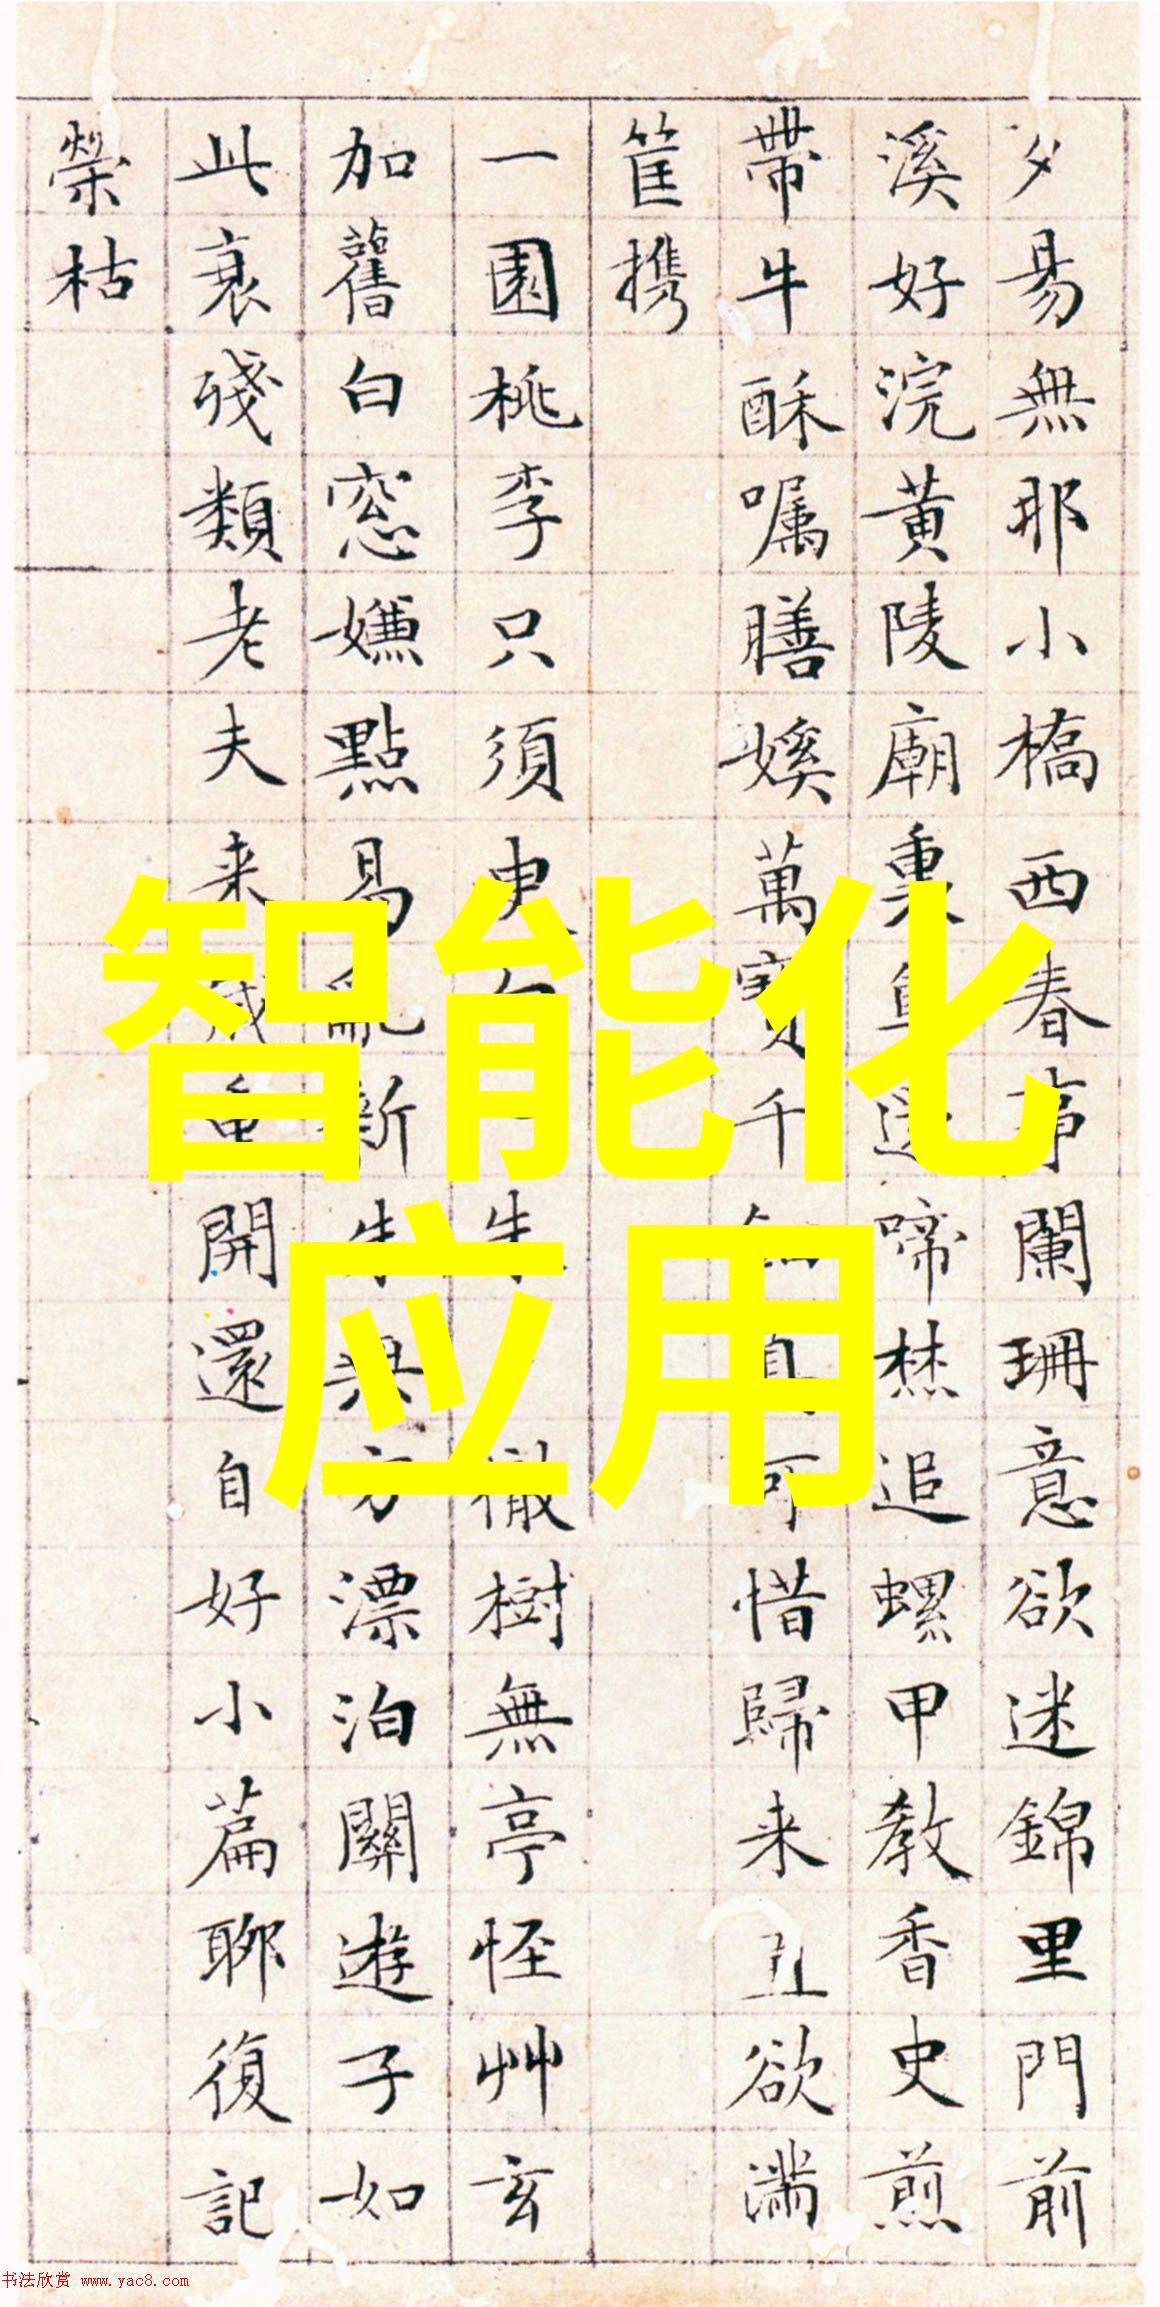 夕易無耶小橋西春事闌珊意欲迷錦里門前
溪好浣黃陵廟裏還啼焚追螺甲教香史煎
帶牛酥囑膳萬寶千可惜歸来丑欲滿
筐携
一園桃李只須臾白朱徹樹無亭怪艸玄
加舊白窓嫌點易亂新朱界方漂泊關遊子如
此衰殘類老夫来歲重開還自好小篇聊復記
榮枯
智能化
应用
书法欣赏 www.yac8.com